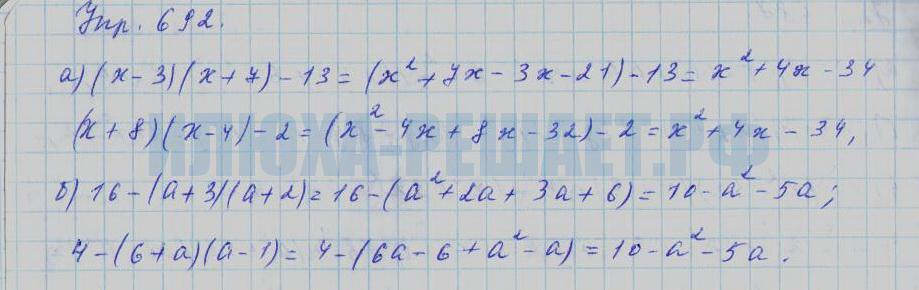 Упр. 692.
а) (x-3)(x+7)-13 = (x²+7x-3x-21)-13 = x²+4x-34
(x+8)(x-4)-2 = (x²-4x+8x-32)-2 = x²+4x-34,
ИЛЮХА-РЕШАЕТ.РФ
б) 16-(a+3)(a+2) = 16-(a²+2a+3a+6) = 10-a²-5a;
4-(6+a)(a-1) = 4-(6a-6+a²-a) = 10-a²-5a.